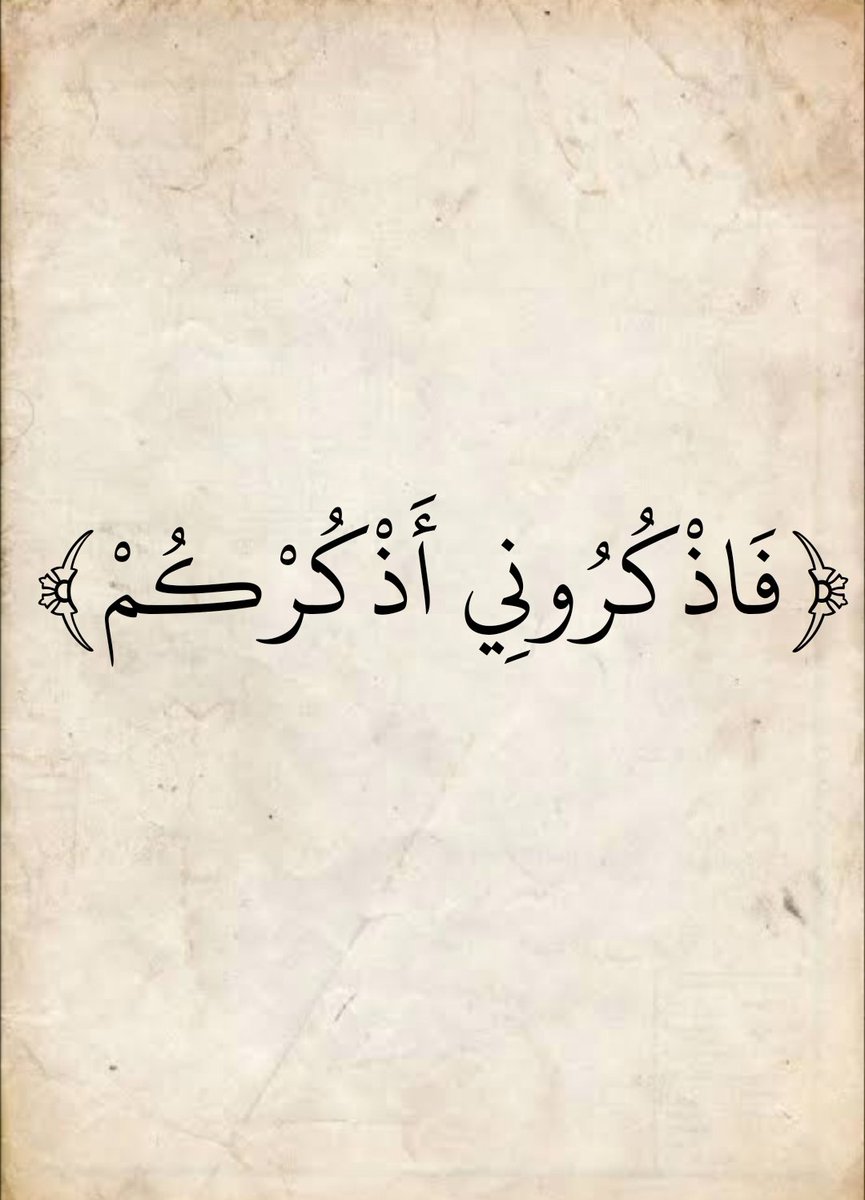 ﴿فَاذْكُرُونِي أَذْكُرْكُمْ﴾